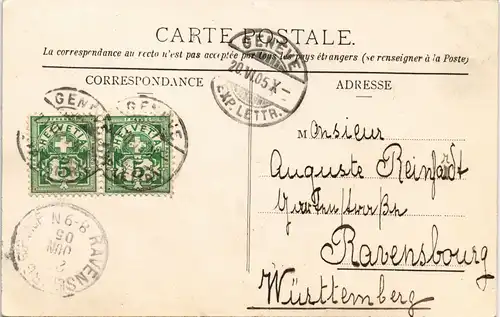 CARTE POSTALE.
La correspondance au recto n'est pas acceptée par tous les pays étrangers (se renseigner à la Poste)
CORRESPONDANCE
ADRESSE
GENÈVE
20.VI.05.X-
EXP. LETTR.
GENÈVE
GENÈVE
HELVETIA
5
HELVETIA
5
RAVENSBURG
JUN
05
8-9 N
Monsieur
Auguste Reinfardt
Gartenstraße
Ravensbourg
Württemberg